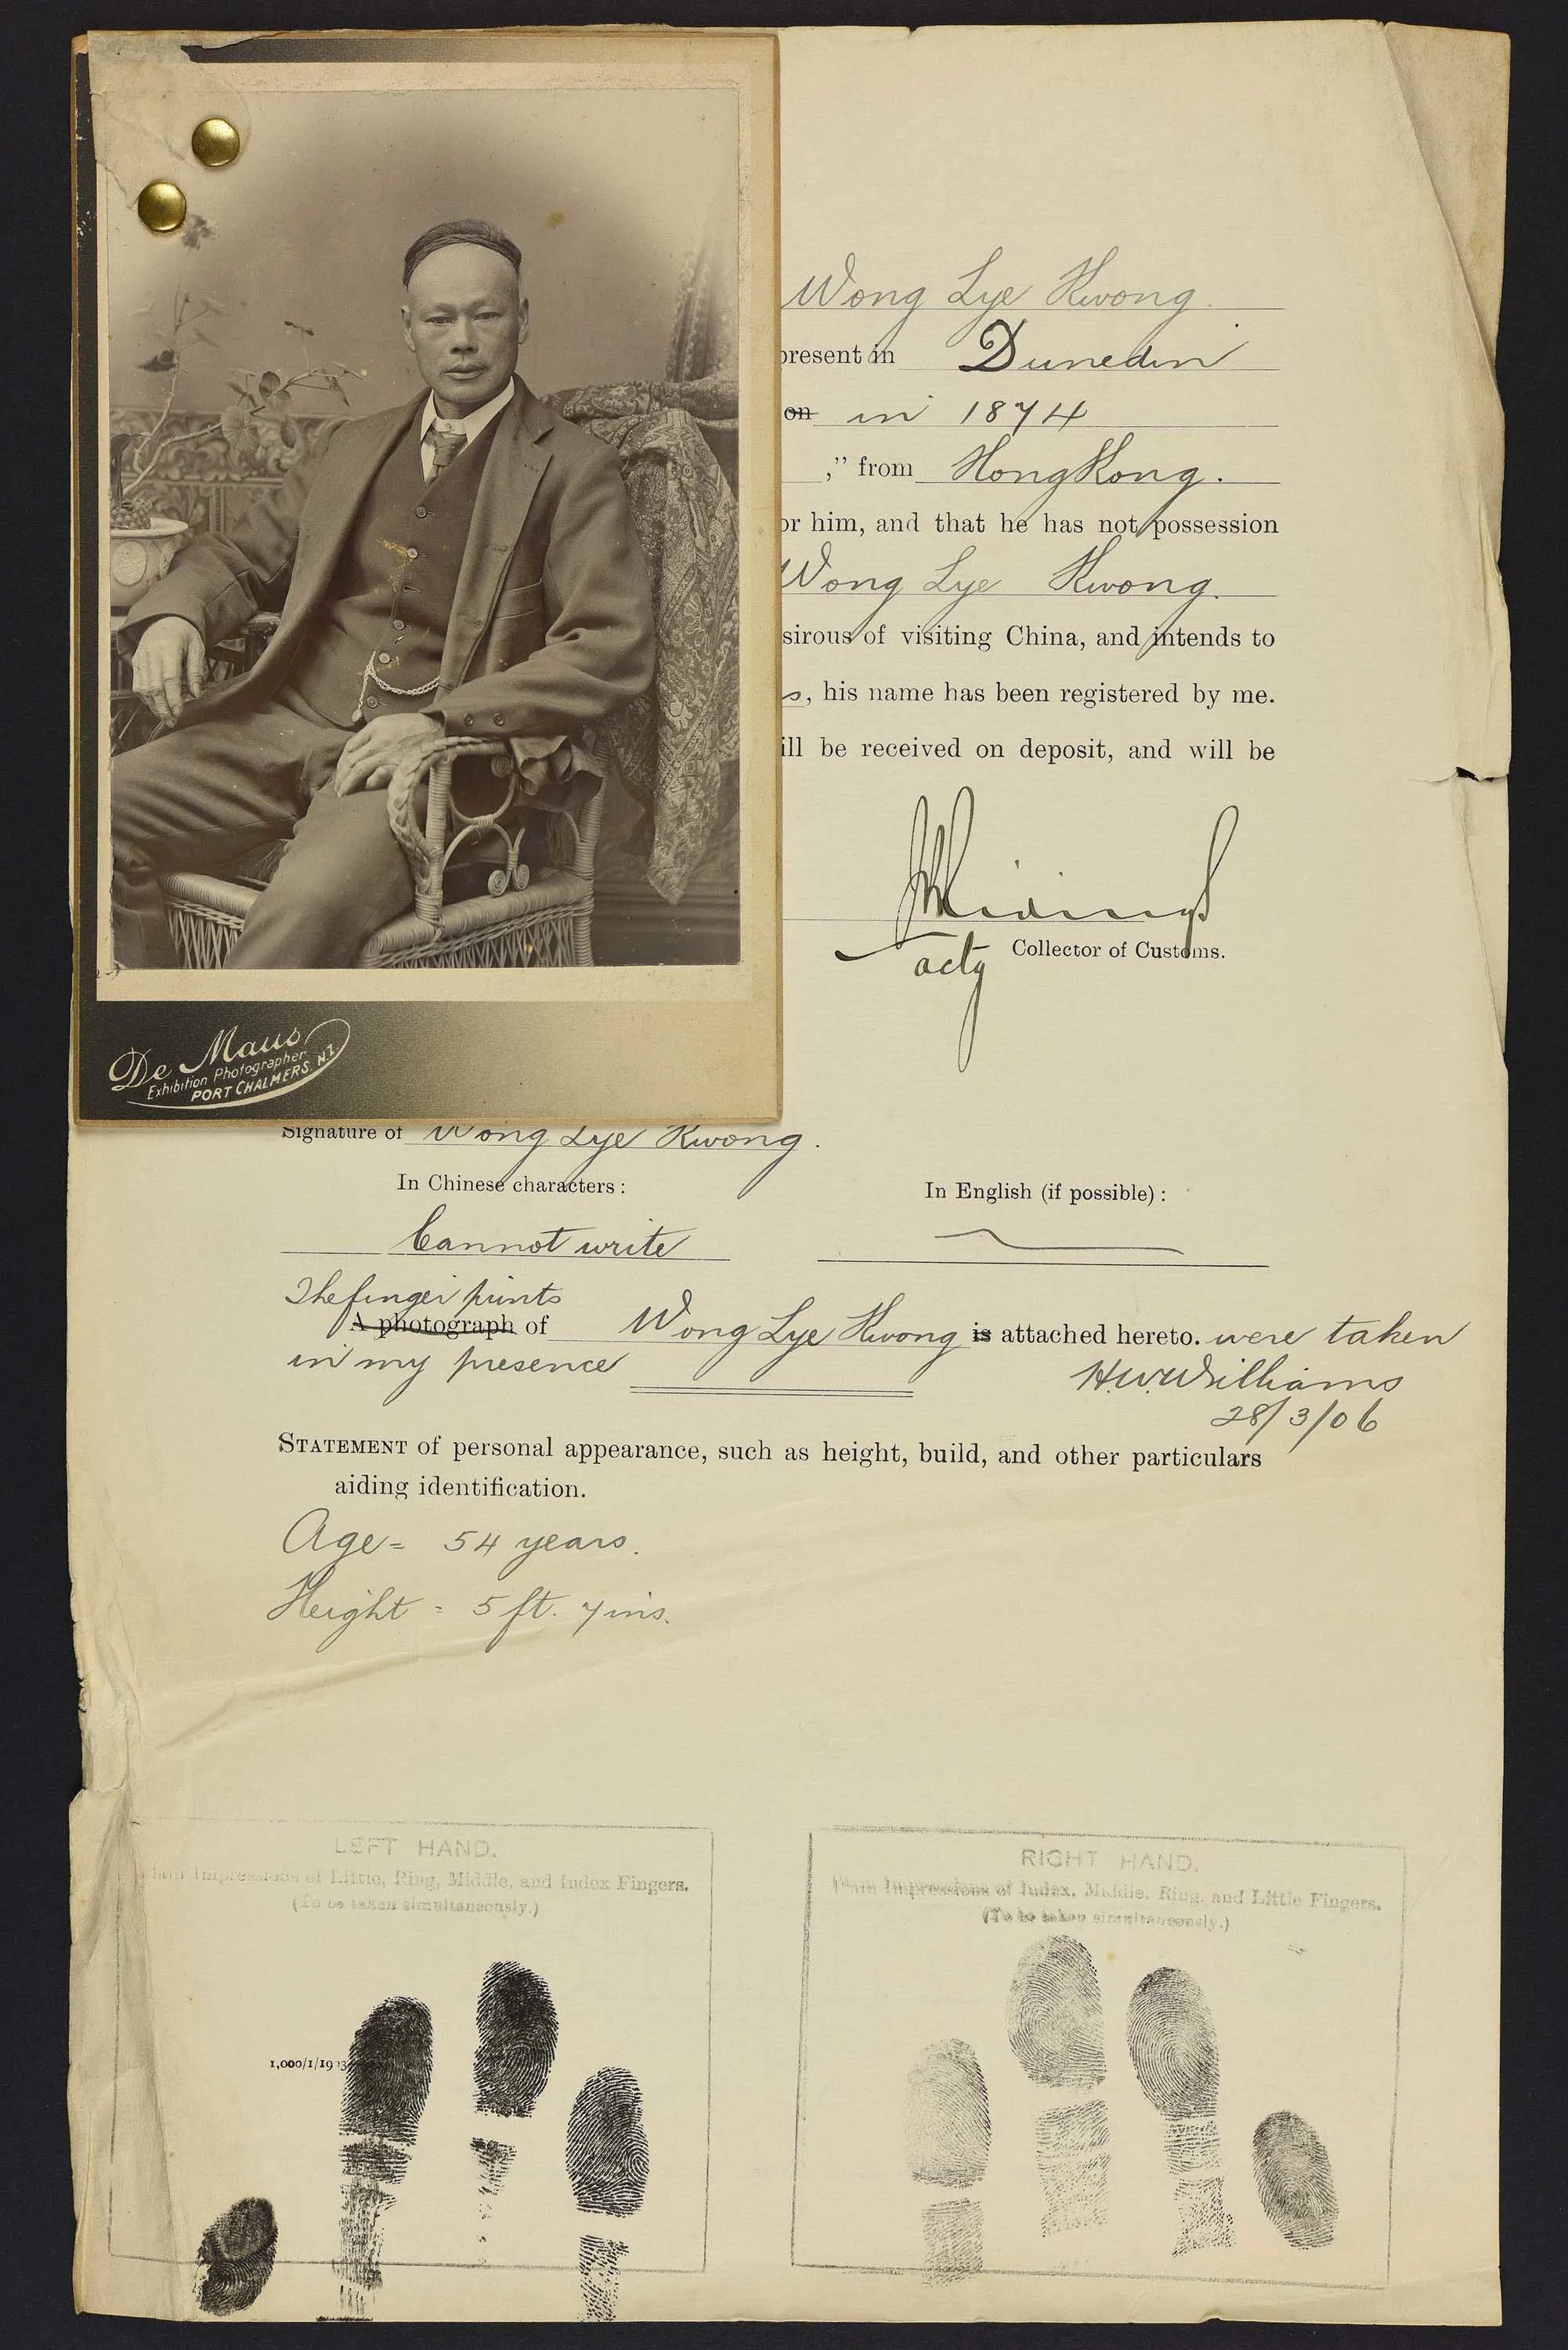 Wong Lye Kwong.
present in Dunedin
on in 1874
," from HongKong.
or him, and that he has not possession
Wong Lye Kwong.
sirous of visiting China, and intends to
s, his name has been registered by me.
ill be received on deposit, and will be
acty Collector of Customs.
De Maus
Exhibition Photographer
PORT CHALMERS. N.Z.
Signature of Wong Lye Kwong.
In Chinese characters: In English (if possible):
Cannot write
The finger prints
A photograph of Wong Lye Kwong is attached hereto. were taken
in my presence H.W.Williams
28/3/06
STATEMENT of personal appearance, such as height, build, and other particulars
aiding identification.
Age = 54 years.
Height = 5 ft. 7 ins.
LEFT HAND.
Impressions of Little, Ring, Middle, and Index Fingers.
(To be taken simultaneously.)
RIGHT HAND.
Plain Impressions of Index, Middle, Ring, and Little Fingers.
(To be taken simultaneously.)
1,000/1/19